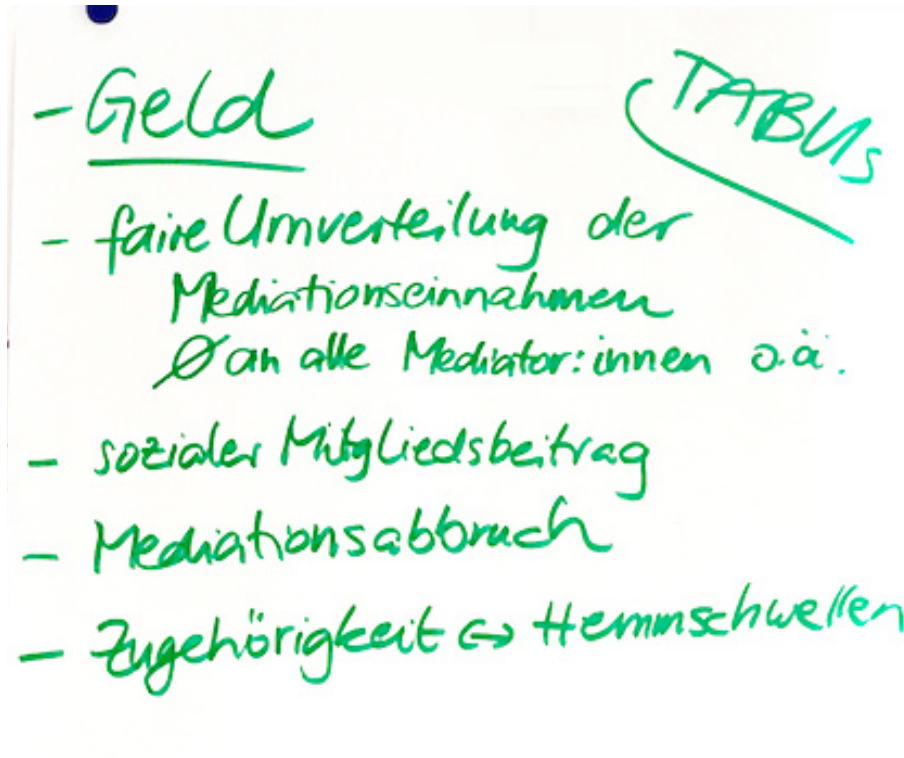 TABUs
- Geld
- faire Umverteilung der
Mediationseinnahmen
Ø an alle Mediator:innen o.ä.
- sozialer Mitgliedsbeitrag
- Mediationsabbruch
- Zugehörigkeit ↔ Hemmschwellen